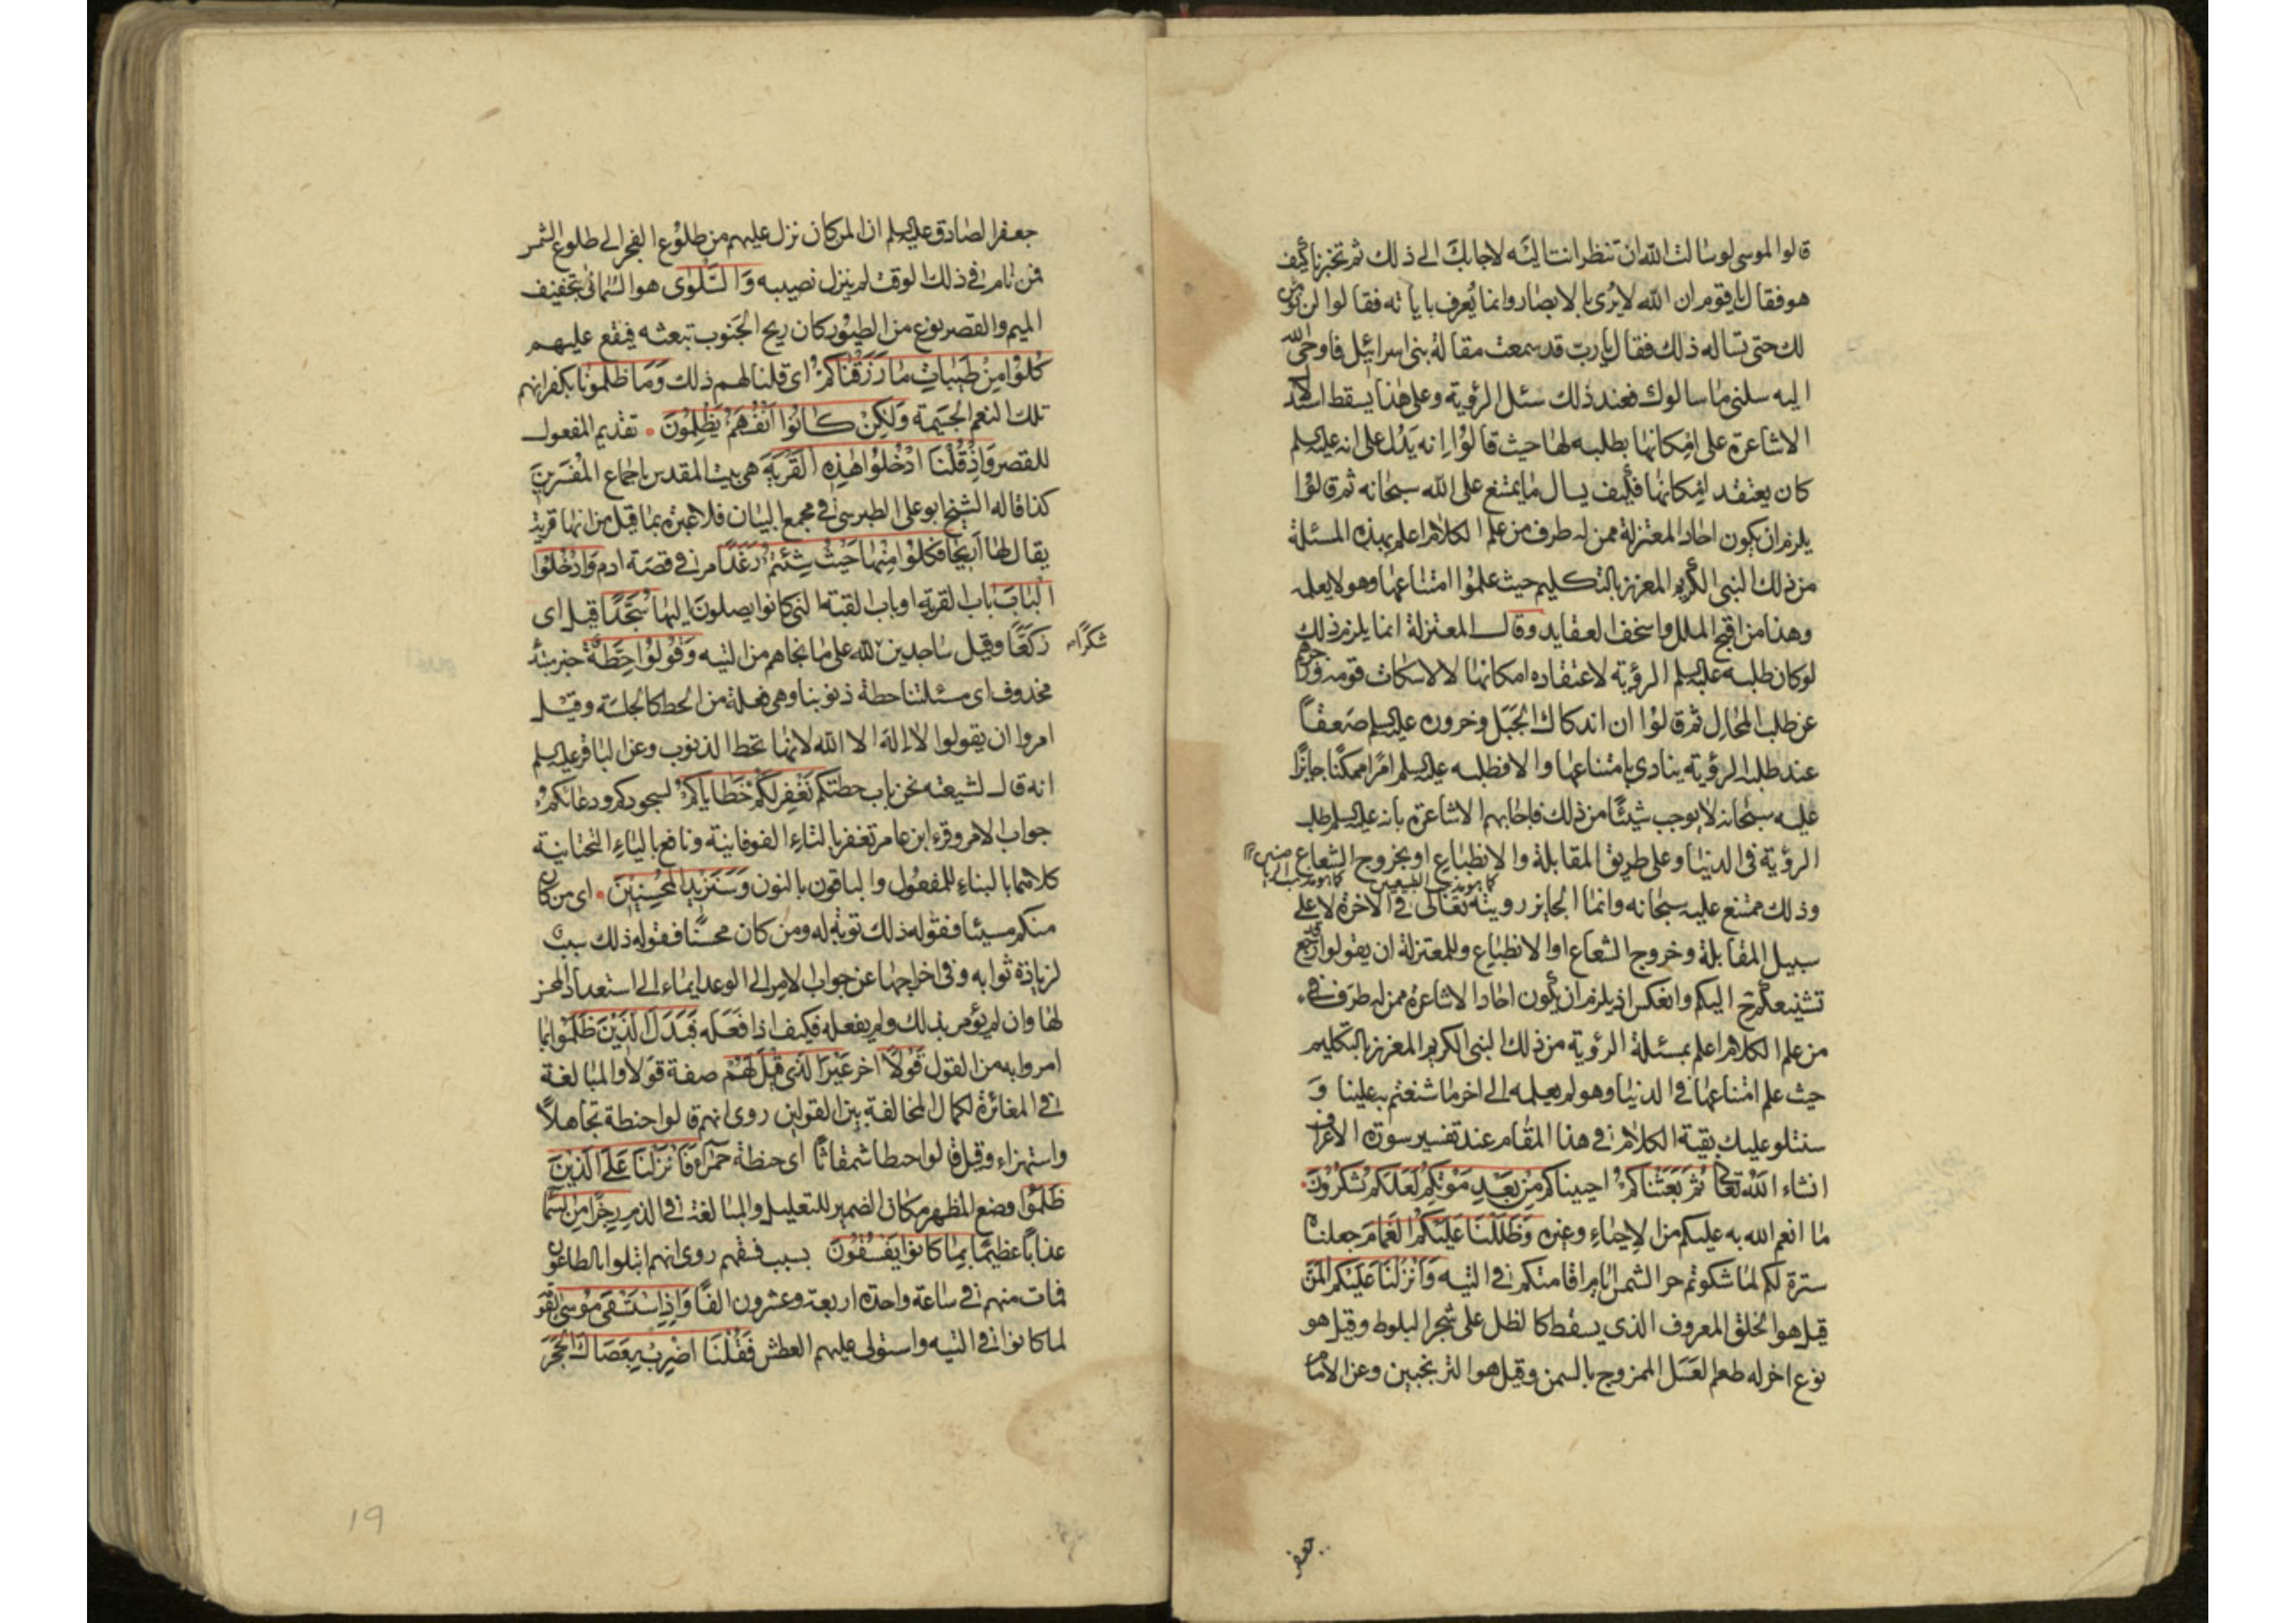 قالوا لموسى لو سالت الله ان تنظر انت اليه لاجابك الى ذلك ثم تخبرنا كيف
هو فقال يا قوم ان الله لا يرى بالابصار وانما يعرف باياته فقالوا لن نؤمن
لك حتى تساله ذلك فقال يا رب قد سمعت مقالة بنى اسرائيل فاوحى الله
اليه سلنى ما سالوك فعند ذلك سئل الرؤية وعلى هذا يسقط استدلال
الاشاعرة على امكانها بطلبه لها حيث قالوا انه يدل على انه عليه السلم
كان يعتقد امكانها فكيف يسال ما يمتنع على الله سبحانه ثم قالوا
يلزم ان يكون احاد المعتزلة ممن له طرف من علم الكلام اعلم بهذه المسئلة
من ذلك النبى الكريم المعزز بالتكليم حيث علموا امتناعها وهو لا يعلمه
وهذا من اقبح الملل واسخف العقايد وقالـ المعتزلة انما يلزم ذلك
لو كان طلبه عليه السلم الرؤية لاعتقاده امكانها لا لاسكات قومه وزجرهم
عن طلب المحال ثم قالوا ان اندكاك الجبل وخروره عليه السلم صعقا
عند طلب الرؤية ينادى بامتناعها والا فطلبه عليه السلم امرا ممكنا جايزا
عليه سبحانه لا يوجب شيئا من ذلك فاجابهم الاشاعرة بانه عليه السلم طلب
الرؤية فى الدنيا وعلى طريق المقابلة والانطباع او بخروج الشعاع
كما هو مذهب الطبيعيين كما هو مذهب الرياضيين
وذلك ممتنع عليه سبحانه وانما الجايز رويته تعالى فى الاخرة لا على
سبيل المقابلة وخروج الشعاع او الانطباع وللمعتزلة ان يقولوا قد رجع
تشنيعكم ح اليكم وانعكس اذ يلزم ان يكون احاد الاشاعرة ممن له طرف فى
من علم الكلام اعلم بمسئلة الرؤية من ذلك النبى الكريم المعزز بالتكليم
حيث علم امتناعها فى الدنيا وهو لم يعلمه الى اخر ما شنعتم به علينا و
سنتلو عليك بقية الكلام فى هذا المقام عند تفسير سورة الاعراف
انشاء الله تعالى ثُمَّ بَعَثْنَاكُمْ احييناكم مِنْ بَعْدِ مَوْتِكُمْ لَعَلَّكُمْ تَشْكُرُونَ
ما انعم الله به عليكم من الاحياء وغيره وَظَلَّلْنَا عَلَيْكُمُ الْغَمَامَ جعلناه
سترة لكم لما شكوتم حر الشمس ايام اقامتكم فى التيه وَاَنْزَلْنَا عَلَيْكُمُ الْمَنَّ
قيل هو الخلق المعروف الذى يسقط كالظل على شجر البلوط وقيل هو
نوع اخر له طعم العسل الممزوج بالسمن وقيل هو الترنجبين وعن الامام
جعفر
جعفر الصادق عليه السلم ان المن كان نزل عليهم من طلوع الفجر الى طلوع الشمس
فمن نام فى ذلك الوقت لم ينزل نصيبه وَالسَّلْوٰى هو السمانى بتخفيف
الميم والقصر نوع من الطيور كان ريح الجنوب تبعثه فيقع عليهم
كُلُوْا مِنْ طَيِّبَاتِ مَا رَزَقْنَاكُمْ اى قلنا لهم ذلك وَمَا ظَلَمُوْنَا بكفرانهم
تلك النعم الجسيمة وَلٰكِنْ كَانُوْا اَنْفُسَهُمْ يَظْلِمُوْنَ تقديم المفعول
للقصر وَاِذْ قُلْنَا ادْخُلُوْا هٰذِهِ الْقَرْيَةَ هى بيت المقدس باجماع المفسرين
كذا قاله الشيخ ابو على الطبرسى فى مجمع البيان فلا عبرة بما قيل من انها قرية
يقال لها اَريحا فَكُلُوْا مِنْهَا حَيْثُ شِئْتُمْ رَغَدًا مر فى قصة ادم وَادْخُلُوا
الْبَابَ باب القرية او باب القبة التى كانوا يصلون اليها سُجَّدًا قيل اى
ركعًا وقيل ساجدين لله على ما نجاهم من التيه وَقُوْلُوْا حِطَّةٌ خبر مبتدأ
شكرًا
محذوف اى مسئلتنا حطة ذنوبنا وهى فعلة من الحط كالجلسة وقيل
امروا ان يقولوا لا اله الا الله لانها تحط الذنوب وعن الباقر عليه السلم
انه قالـ لشيعته نحن باب حطتكم نَغْفِرْ لَكُمْ خَطَايَاكُمْ لسجودكم ودعائكم
جواب الامر وقرء ابن عامر تغفر بالتاء الفوقانية ونافع بالياء التحتانية
كلاهما بالبناء للمفعول والباقون بالنون وَسَنَزِيْدُ الْمُحْسِنِيْنَ اى من كان
منكم مسيئا فقوله ذلك توبة له ومن كان محسنا فقوله ذلك سبب
لزيادة ثوابه وفى اخراجها عن جواب الامر الى الوعد ايماء الى استعداد المحسن
لها وان لم يؤمر بذلك ولم يفعله فكيف اذا فعله فَبَدَّلَ الَّذِيْنَ ظَلَمُوْا بما
امروا به من القول قَوْلًا اخر غَيْرَ الَّذِى قِيْلَ لَهُمْ صفة قولا والمبالغة
فى المغائرة لكمال المخالفة بين القولين روى انهم قالوا حنطة تجاهلًا
واستهزاء وقيل قالوا حطا شمقاثا اى حنطة حمراء فَاَنْزَلْنَا عَلَى الَّذِيْنَ
ظَلَمُوْا وضع المظهر مكان الضمير للتعليل والمبالغة فى الذم رِجْزًا مِنَ السَّمَاءِ
عذابًا عظيما بِمَا كَانُوْا يَفْسُقُوْنَ بسبب فسقهم روى انهم ابتلوا بالطاعون
فمات منهم فى ساعة واحدة اربعة وعشرون الفًا وَاِذِ اسْتَسْقٰى مُوْسٰى لِقَوْمِهِ
لما كانوا فى التيه واستولى عليهم العطش فَقُلْنَا اضْرِبْ بِعَصَاكَ الْحَجَرَ
19